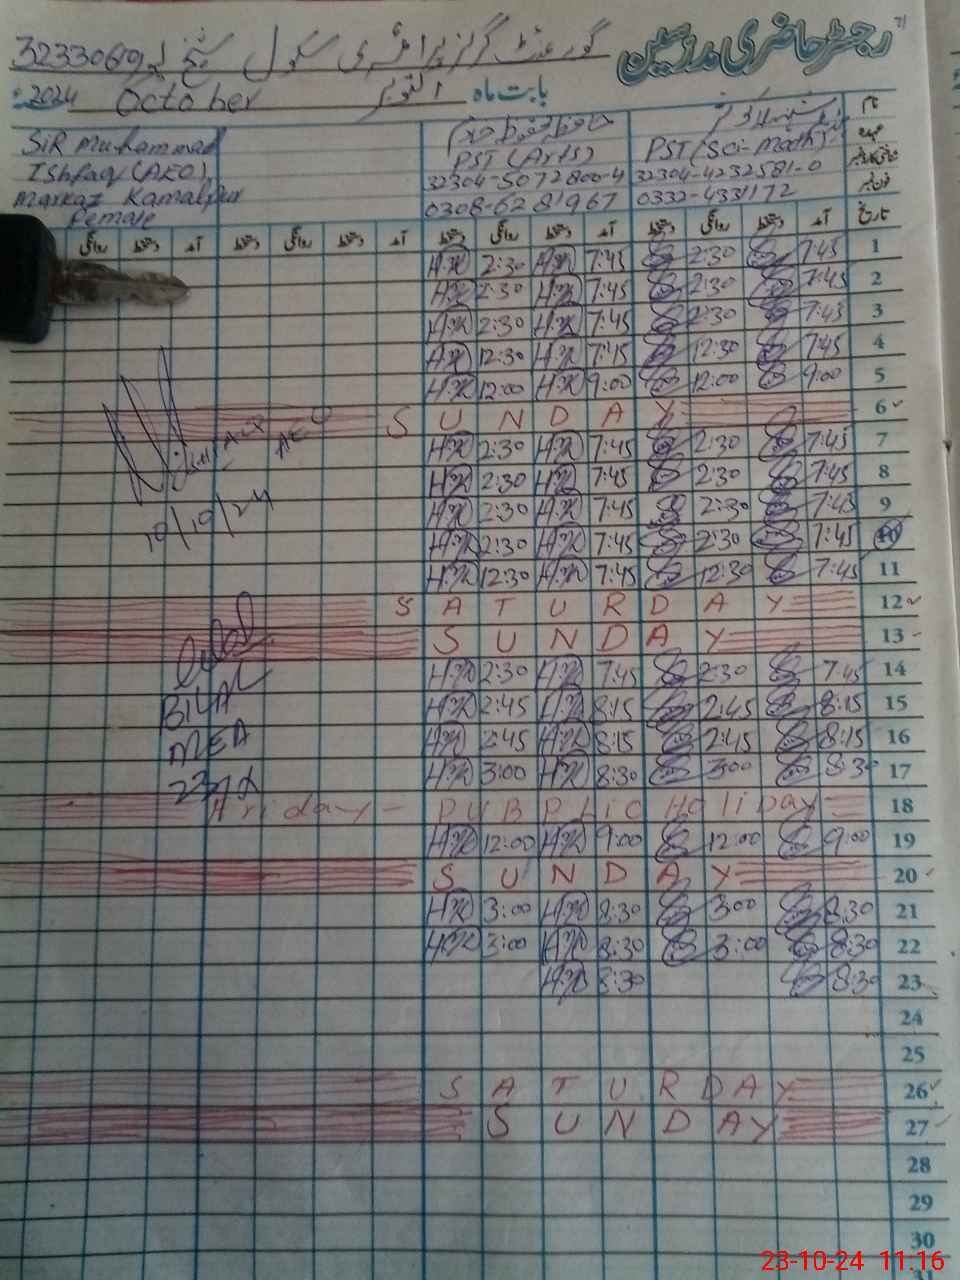 رجسٹر حاضری مدرسین
گورنمنٹ گرلز پرائمری سکول
بابت ماہ اکتوبر October 2024
نام
SiR Muhammad
Ishfaq (AEO)
Markaz Kamalpur
Female
PST (Arts)
PST (Sci-Math)
32304-5072800-4
32304-4232581-0
0308-6281967
0332-4331172
تاریخ آمد دستخط روانگی دستخط آمد دستخط روانگی دستخط آمد دستخط روانگی دستخط آمد دستخط روانگی
1 7:45 2:30 7:45 H.K 2:30 H.K
2 7:45 2:30 7:45 H.K 2:30 H.K
3 7:45 2:30 7:45 H.K 2:30 H.K
4 7:45 12:30 7:45 H.K 12:30 H.K
5 9:00 12:00 9:00 H.K 12:00 H.K
6 SUNDAY
7 7:45 2:30 7:45 H.K 2:30 H.K
8 7:45 2:30 7:45 H.K 2:30 H.K
9 7:45 2:30 7:45 H.K 2:30 H.K
10 7:45 2:30 7:45 H.K 2:30 H.K
11 7:45 12:30 7:45 H.K 12:30 H.K
AEO
10/10/24
12 SATURDAY
13 SUNDAY
14 7:45 2:30 7:45 H.K 2:30 H.K
15 8:15 2:45 8:15 H.K 2:45 H.K
16 8:15 2:45 8:15 H.K 2:45 H.K
17 8:30 3:00 8:30 H.K 3:00 H.K
BILAL
MEA
18 Friday - PUBPLiC HoliDay
19 9:00 12:00 9:00 H.K 12:00 H.K
20 SUNDAY
21 8:30 3:00 8:30 H.K 3:00 H.K
22 8:30 3:00 8:30 H.K 3:00 H.K
23 8:30 8:30 H.K
24
25
26 SATURDAY
27 SUNDAY
28
29
30
23-10-24 11:16